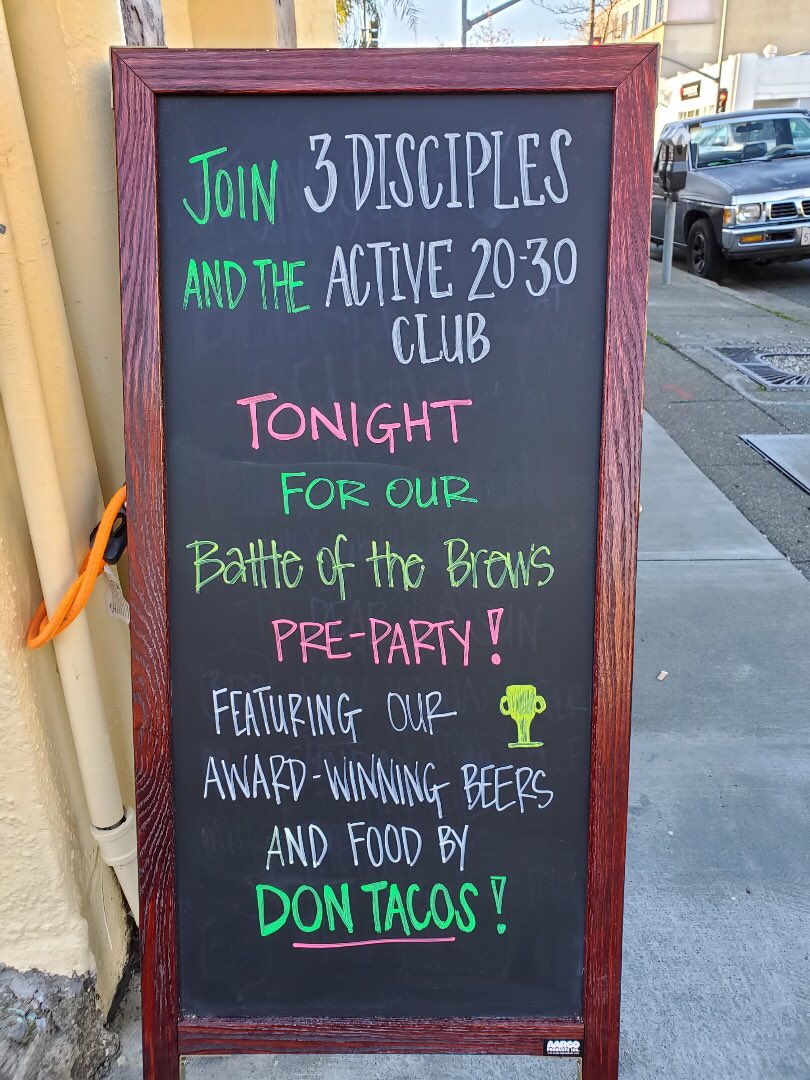 JOIN 3 DISCIPLES
AND THE ACTIVE 20-30
CLUB
TONIGHT
FOR OUR
Battle of the Brews
PRE-PARTY!
FEATURING OUR
AWARD-WINNING BEERS
AND FOOD BY
DON TACOS!
AARCO
PRODUCTS INC.